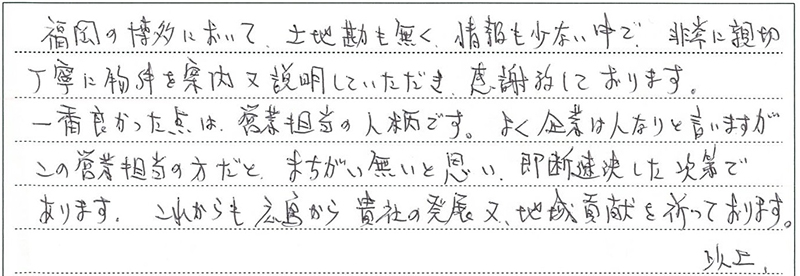 福岡の博多において、土地勘も無く、情報も少ない中で、非常に親切
丁寧に物件を案内又説明していただき、感謝致しております。
一番良かった点は、営業担当の人柄です。よく企業は人なりと言いますが
この営業担当の方だと、まちがい無いと思い、即断速決した次第で
あります。これからも広島から貴社の発展又、地域貢献を祈っております。
以上、